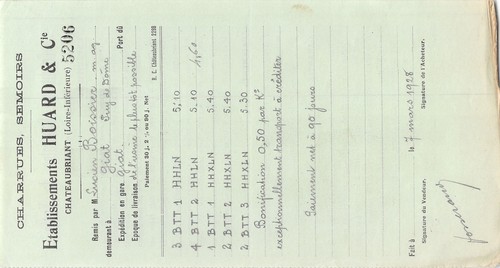 CHARRUES, SEMOIRS
Etablissements HUARD & Cie
CHATEAUBRIANT (Loire-Inférieure) 5206
Remis par M Lucien Boissier mag
demeurant à Giat Puy de Dôme
Expédition en gare Giat Port dû
Epoque de livraison le plus tôt possible
Paiement 30 j. 2 % ou 90 j. Net
R. C. Châteaubriant 2398
3 BTT 1 HHLN 5.10
4 BTT 2 HHLN 5.10 4,60
1 BTT 1 HHXLN 5.40
2 BTT 2 HHXLN 5.40
2 BTT 3 HHXLN 5.30
Bonification 0,50 par K°
exceptionnellement transport à créditer
Paiement net à 90 jours
Fait à le 7 mars 1928
Signature du Vendeur, Signature de l'Acheteur,